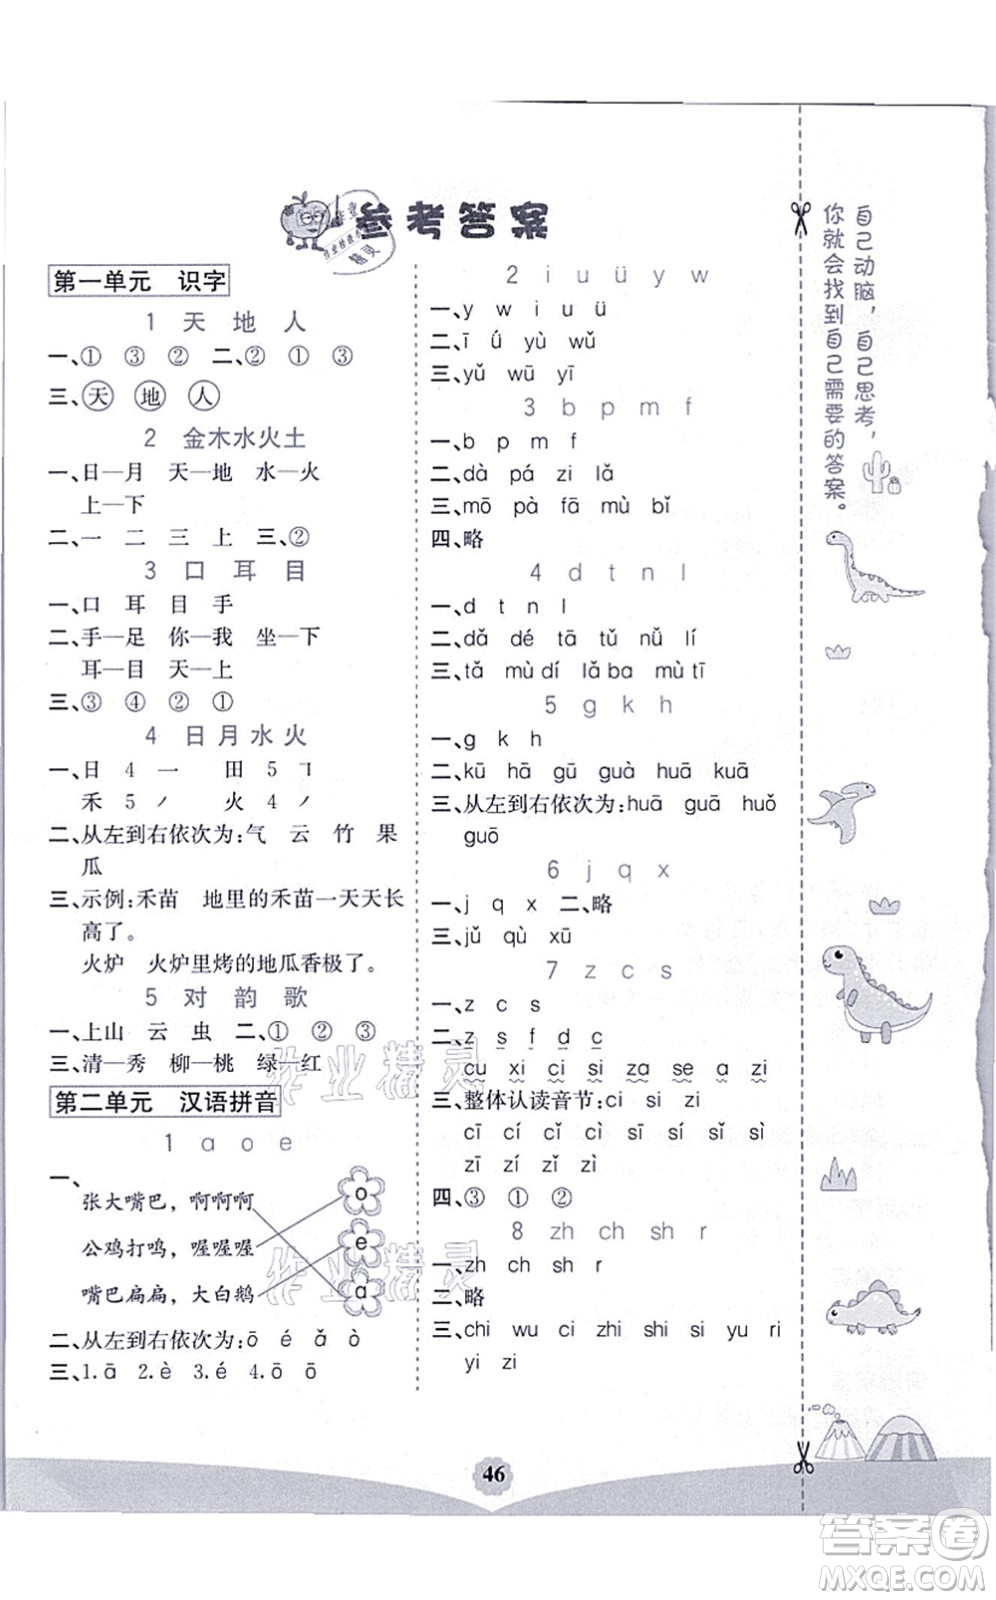 参考答案
第一单元 识字
1 天 地 人
一、① ③ ② 二、② ① ③
三、天 地 人
2 金木水火土
一、日—月 天—地 水—火
上—下
二、一 二 三 上 三、②
3 口 耳 目
一、口 耳 目 手
二、手—足 你—我 坐—下
耳—目 天—上
三、③ ④ ② ①
4 日月水火
一、日 4 一 田 5 ㇕
禾 5 ノ 火 4 ノ
二、从左到右依次为:气 云 竹 果
瓜
三、示例:禾苗 地里的禾苗一天天长
高了。
火炉 火炉里烤的地瓜香极了。
5 对 韵 歌
一、上山 云 虫 二、① ② ③
三、清—秀 柳—桃 绿—红
第二单元 汉语拼音
1 a o e
一、
张大嘴巴，啊啊啊 o
公鸡打鸣，喔喔喔 e
嘴巴扁扁，大白鹅 a
二、从左到右依次为:ō é ǎ ò
三、1.ā 2.è 3.é 4.ō ō
2 i u ü y w
一、y w i u ü
二、ī ǘ yù wǔ
三、yǔ wū yī
3 b p m f
一、b p m f
二、dà pá zi lǎ
三、mō pō fā mù bǐ
四、略
4 d t n l
一、d t n l
二、dǎ dé tā tǔ nǚ lí
三、tǎ mù dí lǎ ba mù tī
5 g k h
一、g k h
二、kū hā gū guà huā kuā
三、从左到右依次为:huā guā huǒ
guō
6 j q x
一、j q x 二、略
三、jǔ qù xū
7 z c s
一、z c s
二、z s f d c
cu xi ci si za se a zi
三、整体认读音节:ci si zi
cī cí cǐ cì sī sí sǐ sì
zī zí zǐ zì
四、③ ① ②
8 zh ch sh r
一、zh ch sh r
二、略
三、chi wu ci zhi shi si yu ri
yi zi
自己动脑，自己思考，
你就会找到自己需要的答案。
作业精灵
作业精灵
46
答案圈
MXQE.COM